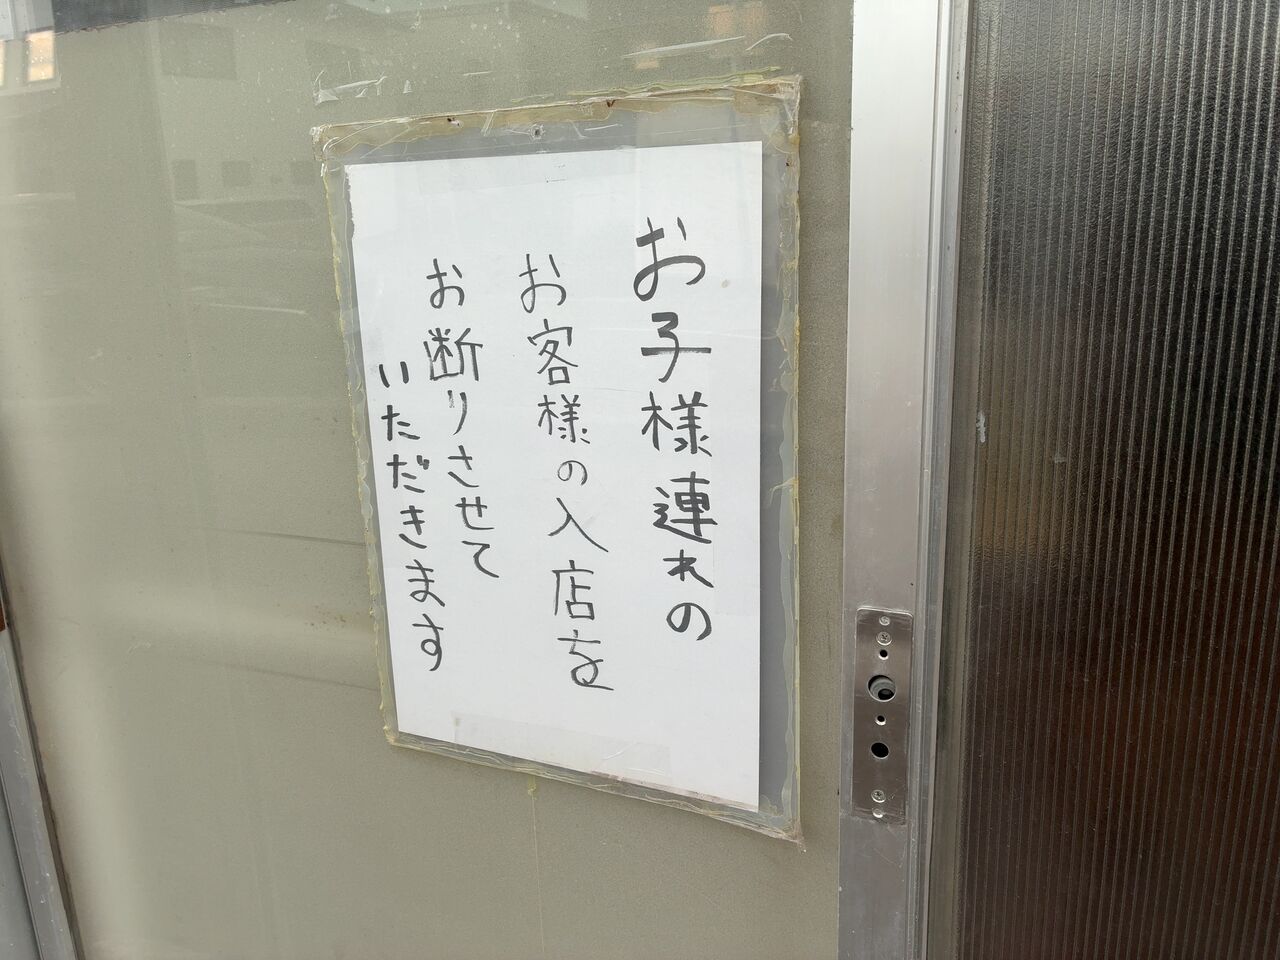 お子様連れの
お客様の入店を
お断りさせて
いただきます